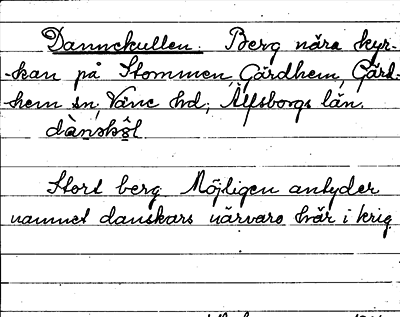 Dannekullen. Berg nära kyr-
-kan på Stommen, Gärdhem, Gärd-
-hem sn, Väne hd, Älfsborgs län.
dànskŏ̀l
Stort berg. Möjligen antyder
namnet danskars närvaro här i krig